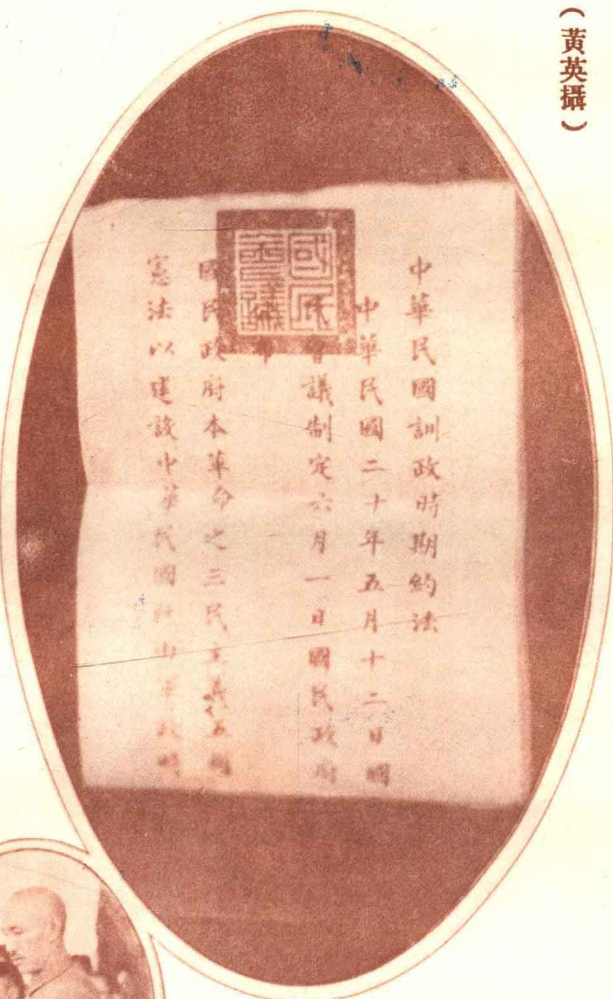 （黃英攝）
中華民國訓政時期約法
中華民國二十年五月十二日國
民會議制定六月一日國民政府
布
國民政府本革命之三民主義五權
憲法以建設中華民國既由軍政時
國民會議